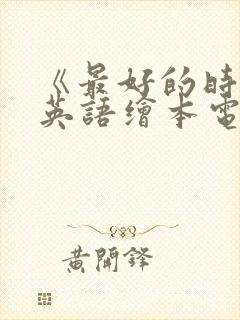 《最好的時
英語繪本電
黃開鋒